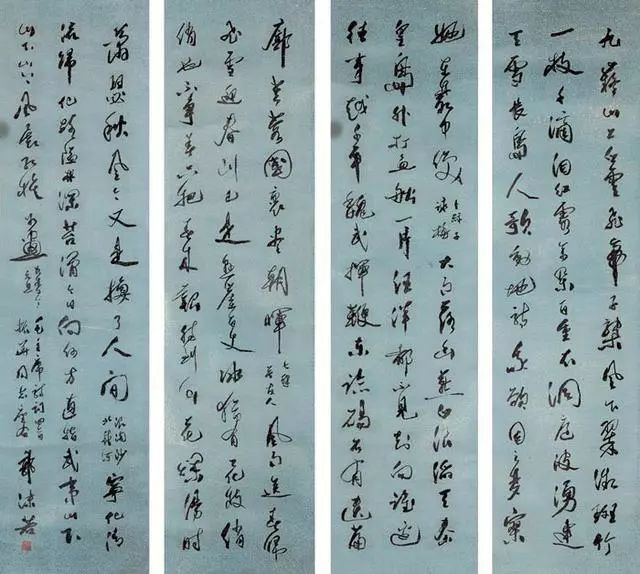 九嶷山上白云飞帝子乘风下翠微斑竹
一枝千滴泪红霞万朵百重衣洞庭波涌连
天雪长岛人歌动地诗我欲因之梦寥
她在丛中笑
卜算子
咏梅
大雨落幽燕白浪滔天秦
皇岛外打鱼船一片汪洋都不见知向谁边
往事越千年魏武挥鞭东临碣石有遗篇
廓芙蓉国里尽朝晖
七律
答友人
风雨送春归
飞雪迎春到已是悬崖百丈冰犹有花枝俏
俏也不争春只把春来报待到山花烂漫时
萧瑟秋风今又是换了人间
浪淘沙
北戴河
宁化清
流归化路隘林深苔滑今日向何方直指武夷山下
山下山下风展红旗如画
毛主席诗词四首
同志
郭沫若